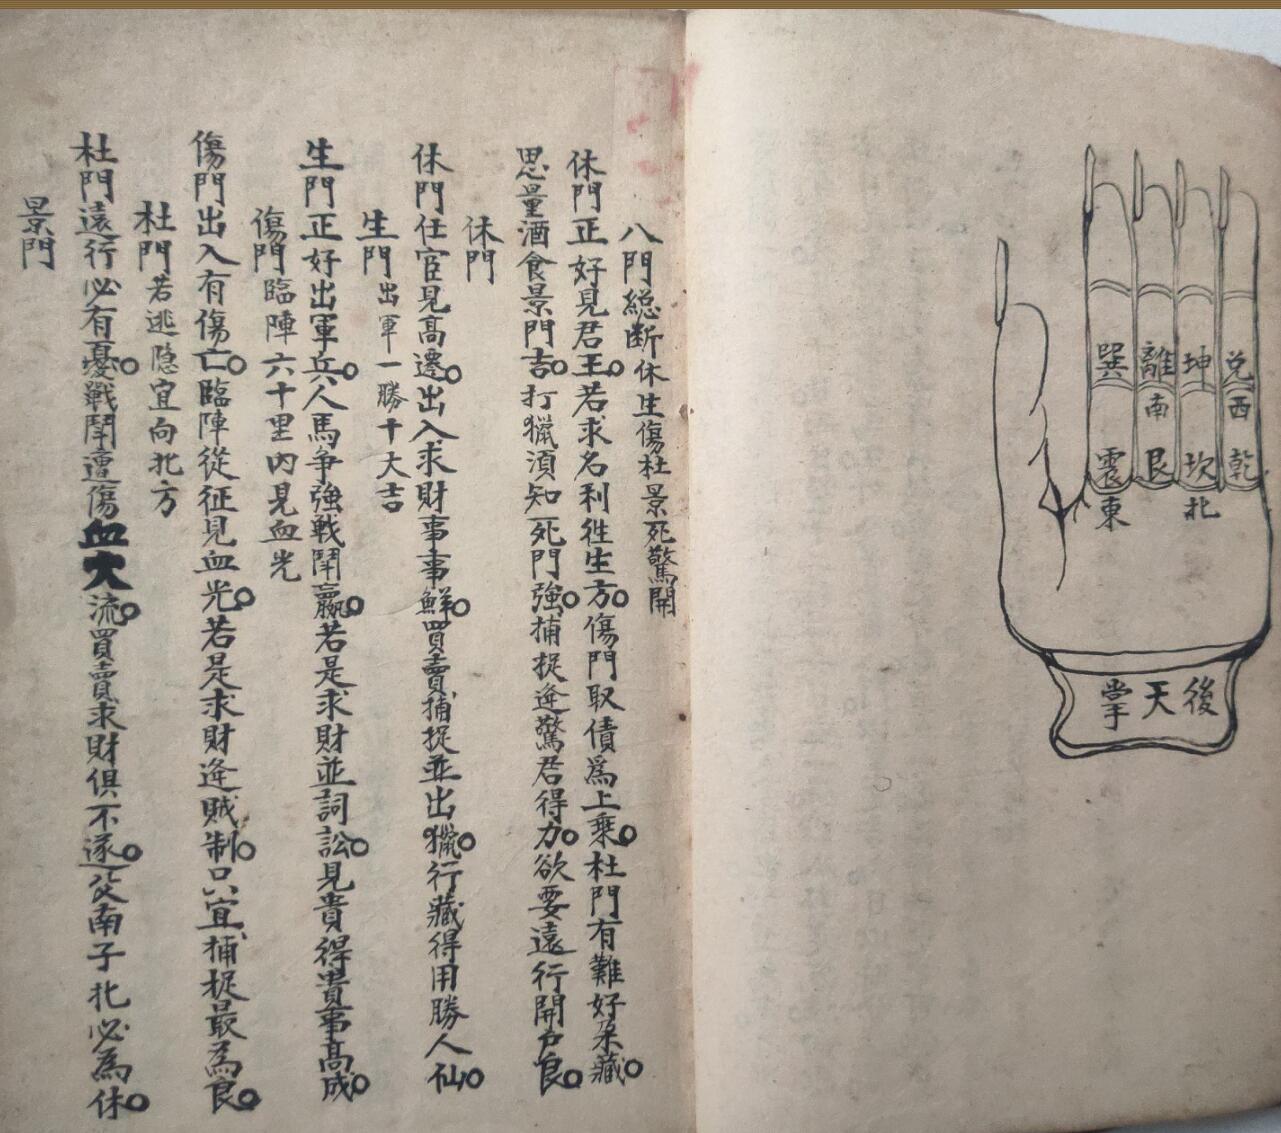 兌 坤 離 巽
西 南
乾 坎 艮 震
北 東
後天掌
八門總断 休生傷杜景死驚開
休門正好見君王若求名利徃生方傷門取債為上乗杜門有難好朶藏
思量酒食景門吉打獵湏知死門強捕捉逄驚君得力欲要遠行開户良
休門
休門任宦見髙遷出入求財事事鮮買賣捕捉並出獵行藏得用勝人仙
生門 出軍一勝十大吉
生門正好出軍兵人馬争強戦鬪嬴若是求財並詞訟見貴得貴事髙成
傷門 臨陣六十里内見血光
傷門出入有傷亡臨陣從征見血光若是求財逄賊制只宜捕捉最為良
杜門 若逃隐宜向北方
杜門遠行必有憂戰鬪遭傷血大流買賣求財俱不遂從南子北必為休
景門